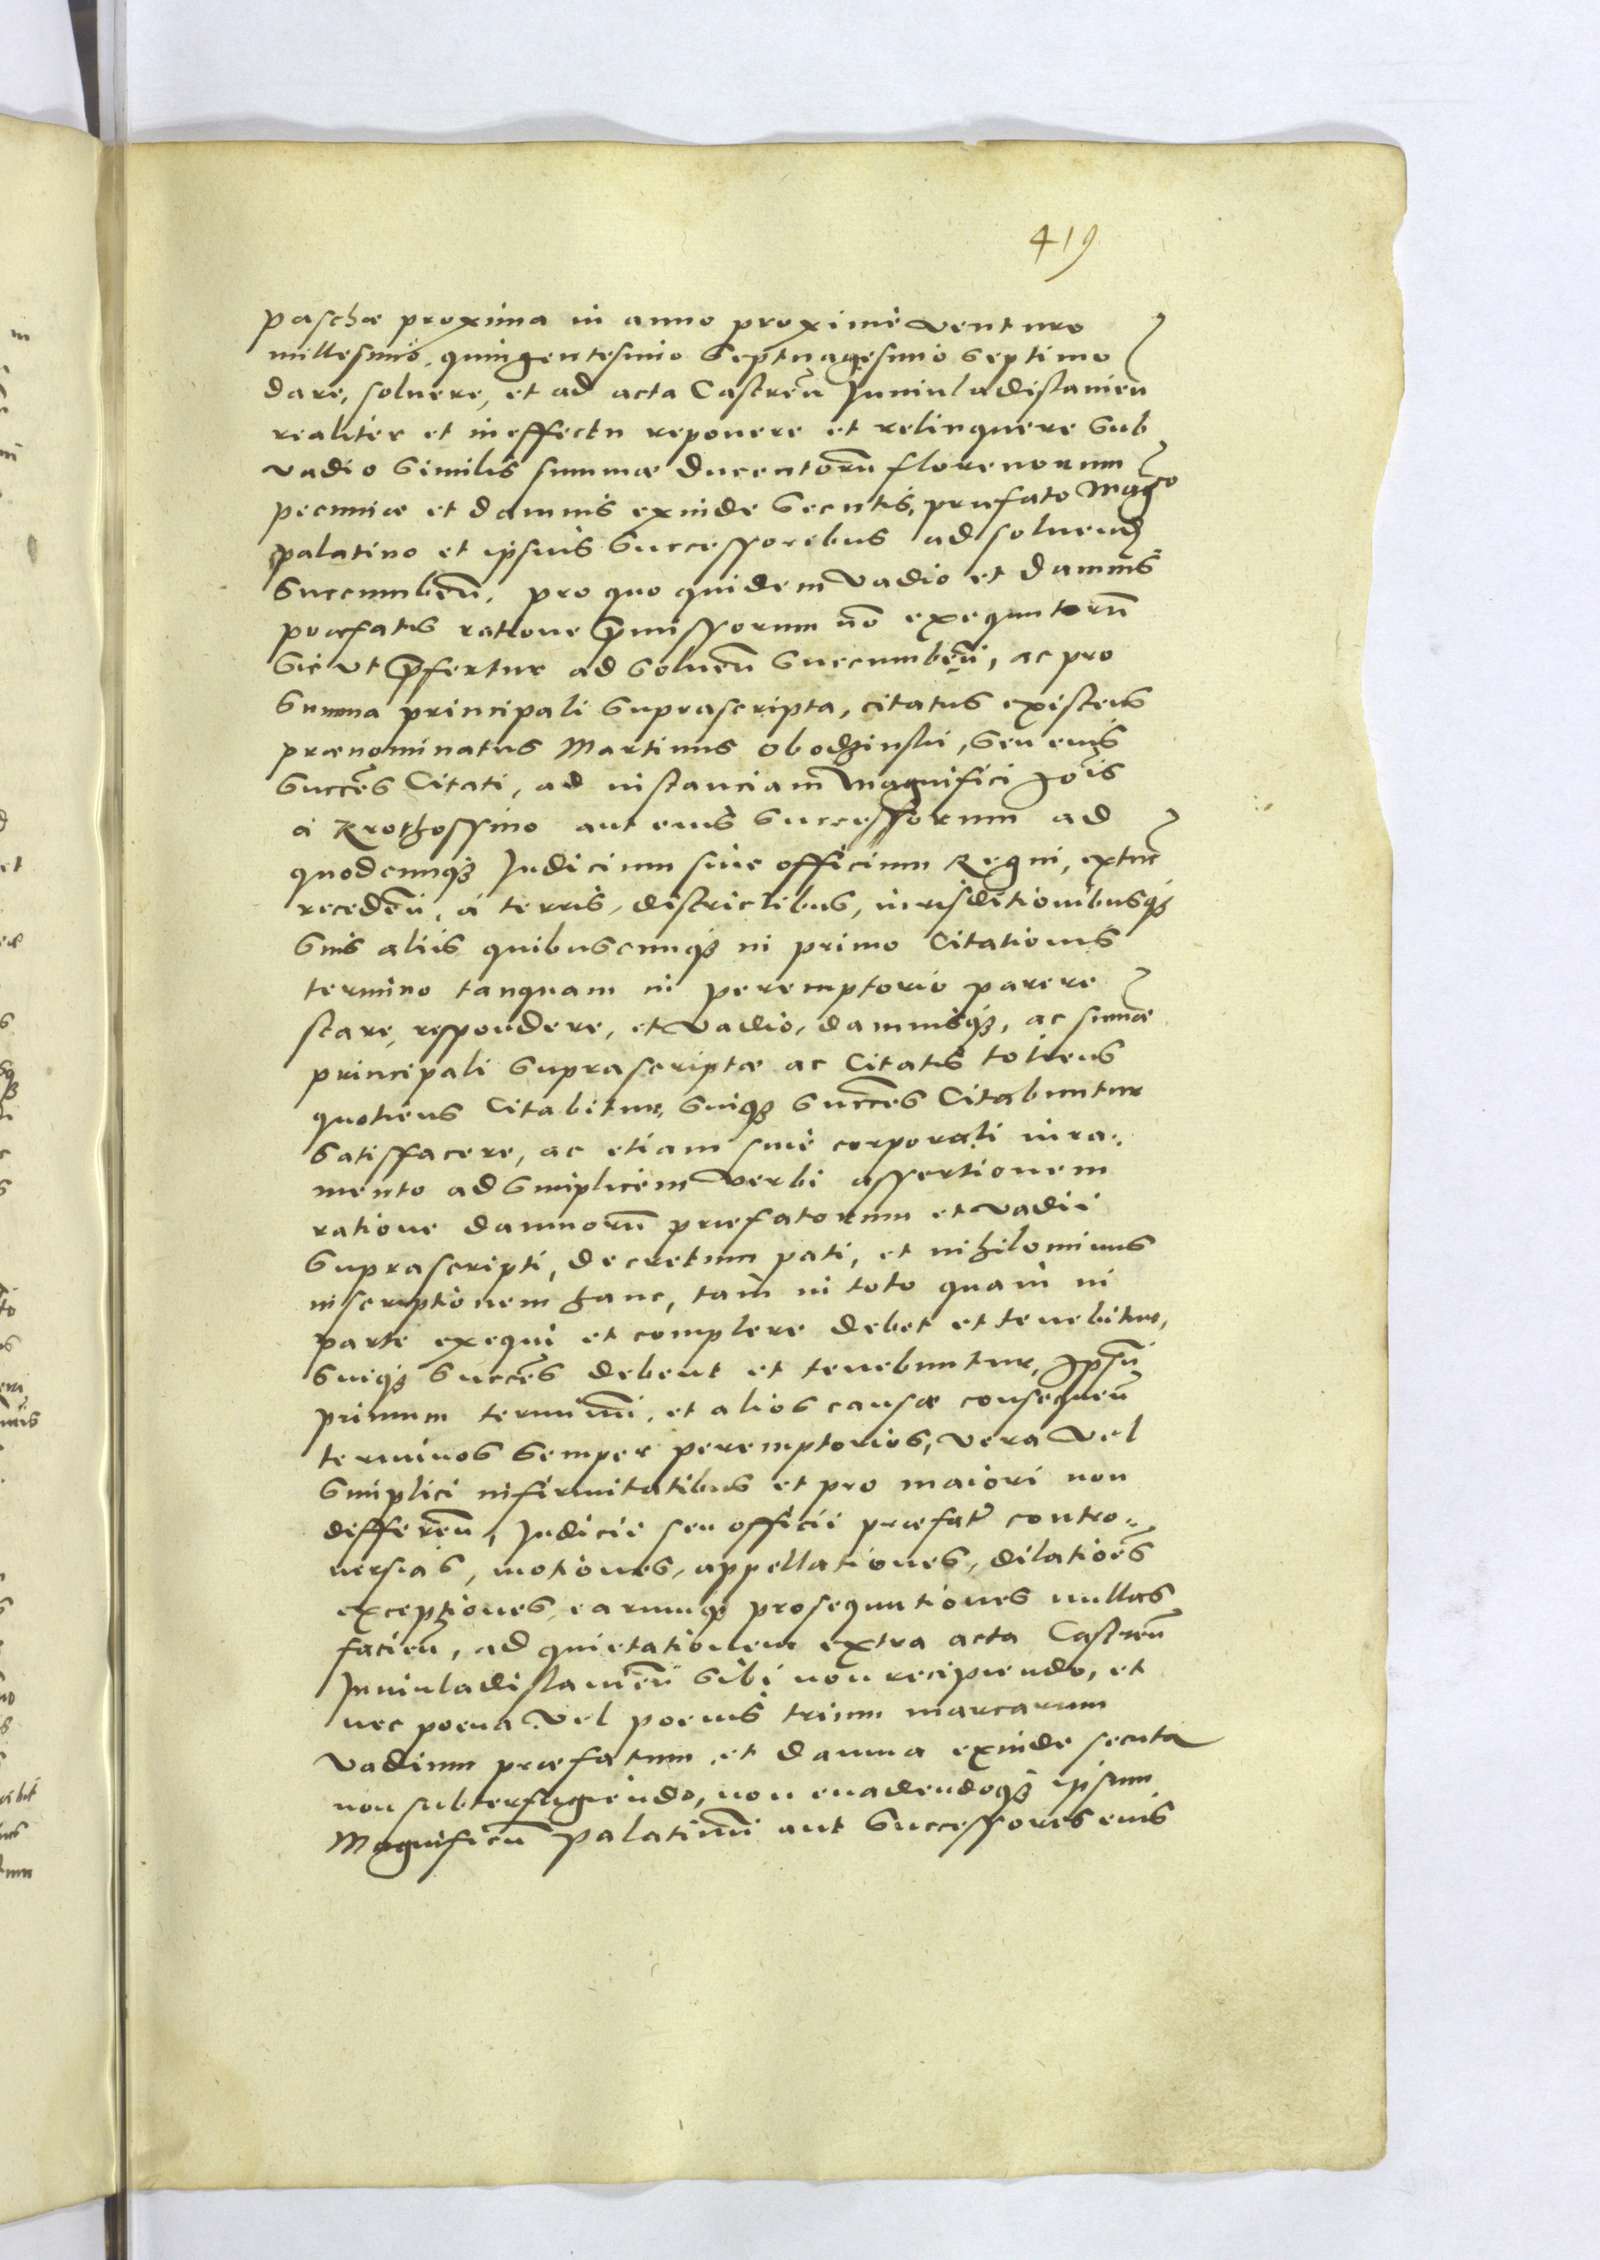 419
paschæ proxima in anno proxime venturo
millesimo. quingentesimo septuagesimo septimo
dare, soluere, et ad acta Castreñ Juniuladislauieñ
realiter et in effectu reponere et relinquere sub
vadio similis summæ ducentorũ florenorum
pecuniæ et damnis exinde secutis, præfato Magco
palatino et ipsius successoribus ad soluend
succumbeñ. pro quo quidem vadio et damnis
præfatus ratione pmissorum nõ exequutorũ
sic vt pfertur ad solueñ succumbeñ, ac pro
summa principali suprascripta, citatus existens
prænominatus Martinus Obodzinski, seu eius
succẽs Citati, ad instanciam Magnifici Joĩs
a Krothossino aut eius successorum ad
quodcunqꝫ Judicium siue officium Regni, extũc
recedeñ, a terris, districtibus, iurisditionibusqꝫ
suis aliis quibuscunqꝫ in primo Citationis
termino tanquam in peremptorio parere
stare, respondere, et vadio, damnisqꝫ, ac sum̃æ
principali suprascriptæ ac Citatis totiens
quotiens Citabitur, suiqꝫ succẽs Citabuntur
satisfacere, ac etiam sine corporali iura„
mento ad simplicem verbi assertionem
ratione damnorũ præfatorum et vadii
suprascripti, decretum pati, et nihilominus
inscriptionem hanc, tam in toto quam in
parte exequi et complere debet et tenebitur,
suiqꝫ succẽs debent et tenebuntur, Ipsũ
primum terminũ, et alios causæ consequeñ
terminos semper peremptorios, vera vel
simplici infirmitatibus et pro maiori non
differeñ, Judicii seu officii præfati contro„
uersias, motiones, appellationes, dilatiões
exceptiones, earumqꝫ prosequutiones nullas
facieñ, ad quietationem extra acta Castreñ
Juniuladislauieñ sibi non recipiendo, et
nec poena vel poenis trium marcarum
vadium præfatum, et damna exinde secuta
non subterfugiendo, non euadendoqꝫ ipsum
Magnificũ palatinũ aut successores eius